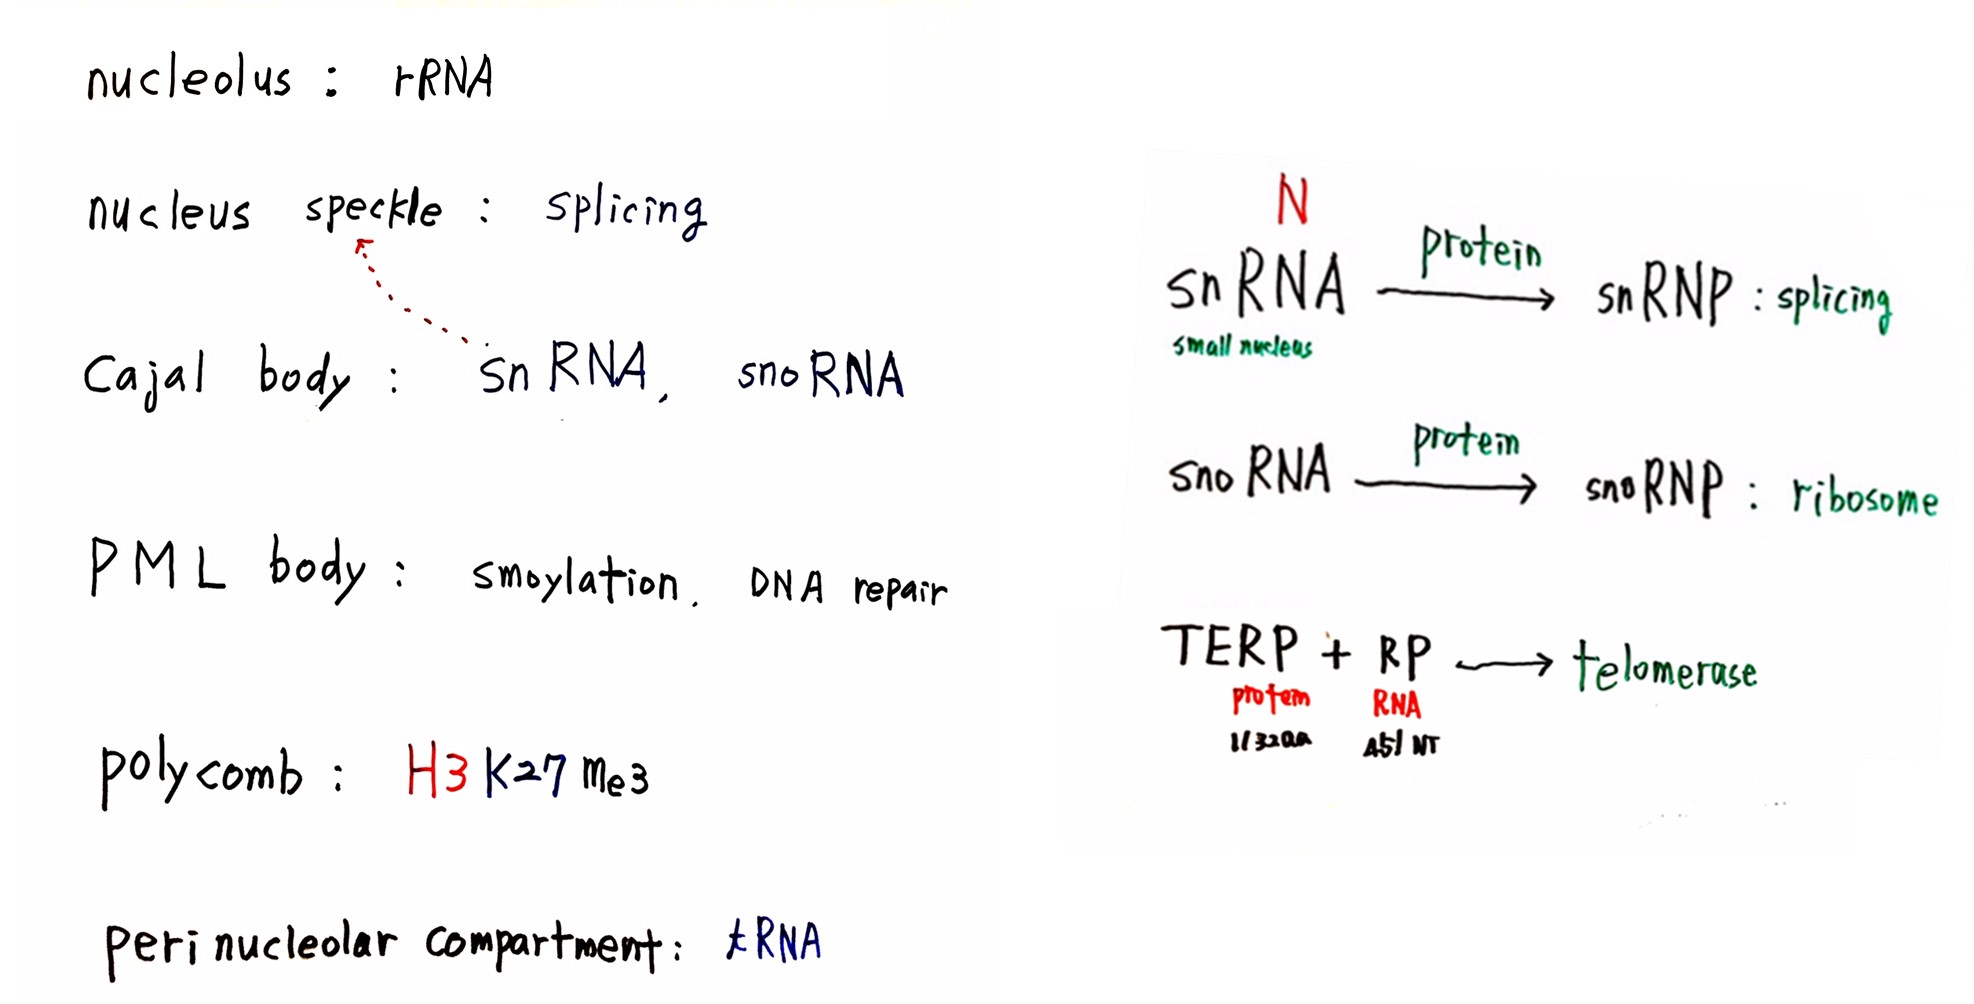 nucleolus : rRNA
nucleus speckle : splicing
Cajal body : snRNA, snoRNA
PML body : smoylation. DNA repair
polycomb : H3K27me3
perinucleolar compartment: tRNA
N
snRNA protein snRNP : splicing
small nucleus
snoRNA protein snoRNP : ribosome
TERP + RP telomerase
protein RNA
1132aa 451 NT